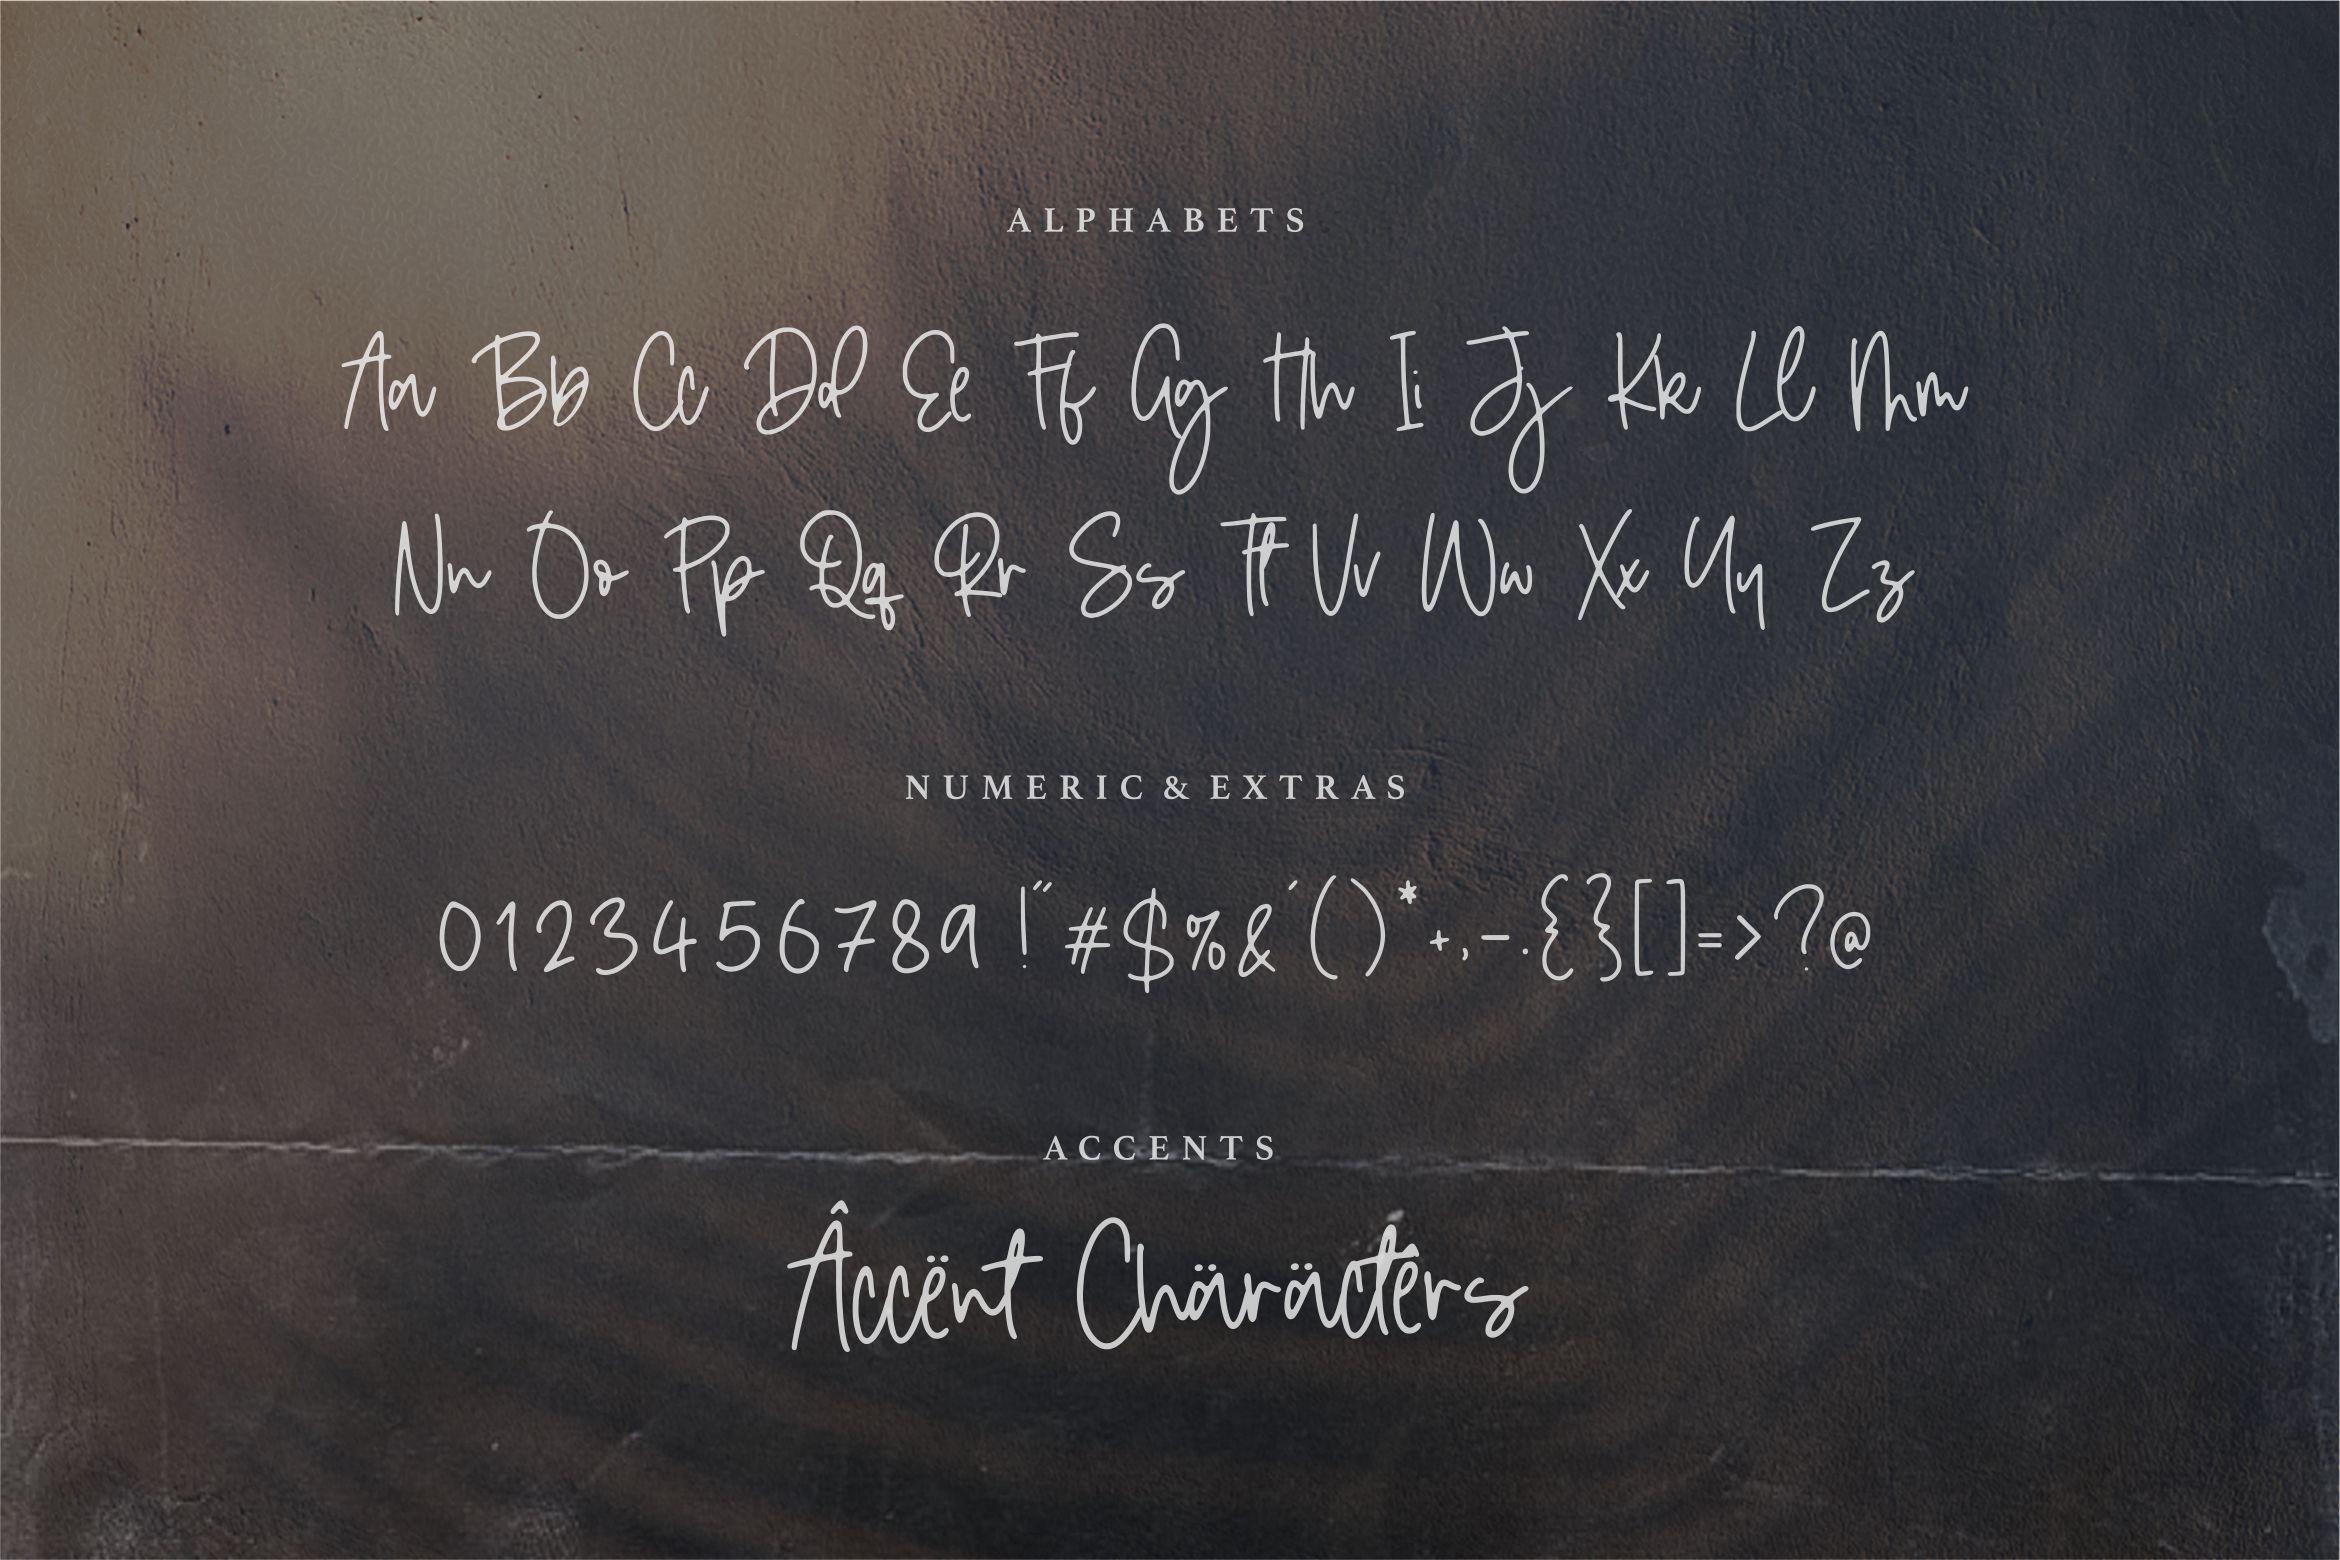 ALPHABETS
Aa Bb Cc Dd Ee Ff Gg Hh Ii Jj Kk Ll Mm
Nn Oo Pp Qq Rr Ss Tt Vv Ww Xx Yy Zz
NUMERIC & EXTRAS
0123456789 !"#$%&'()*+,-.{}[]=>?@
ACCENTS
Âccënt Chäräctêrs